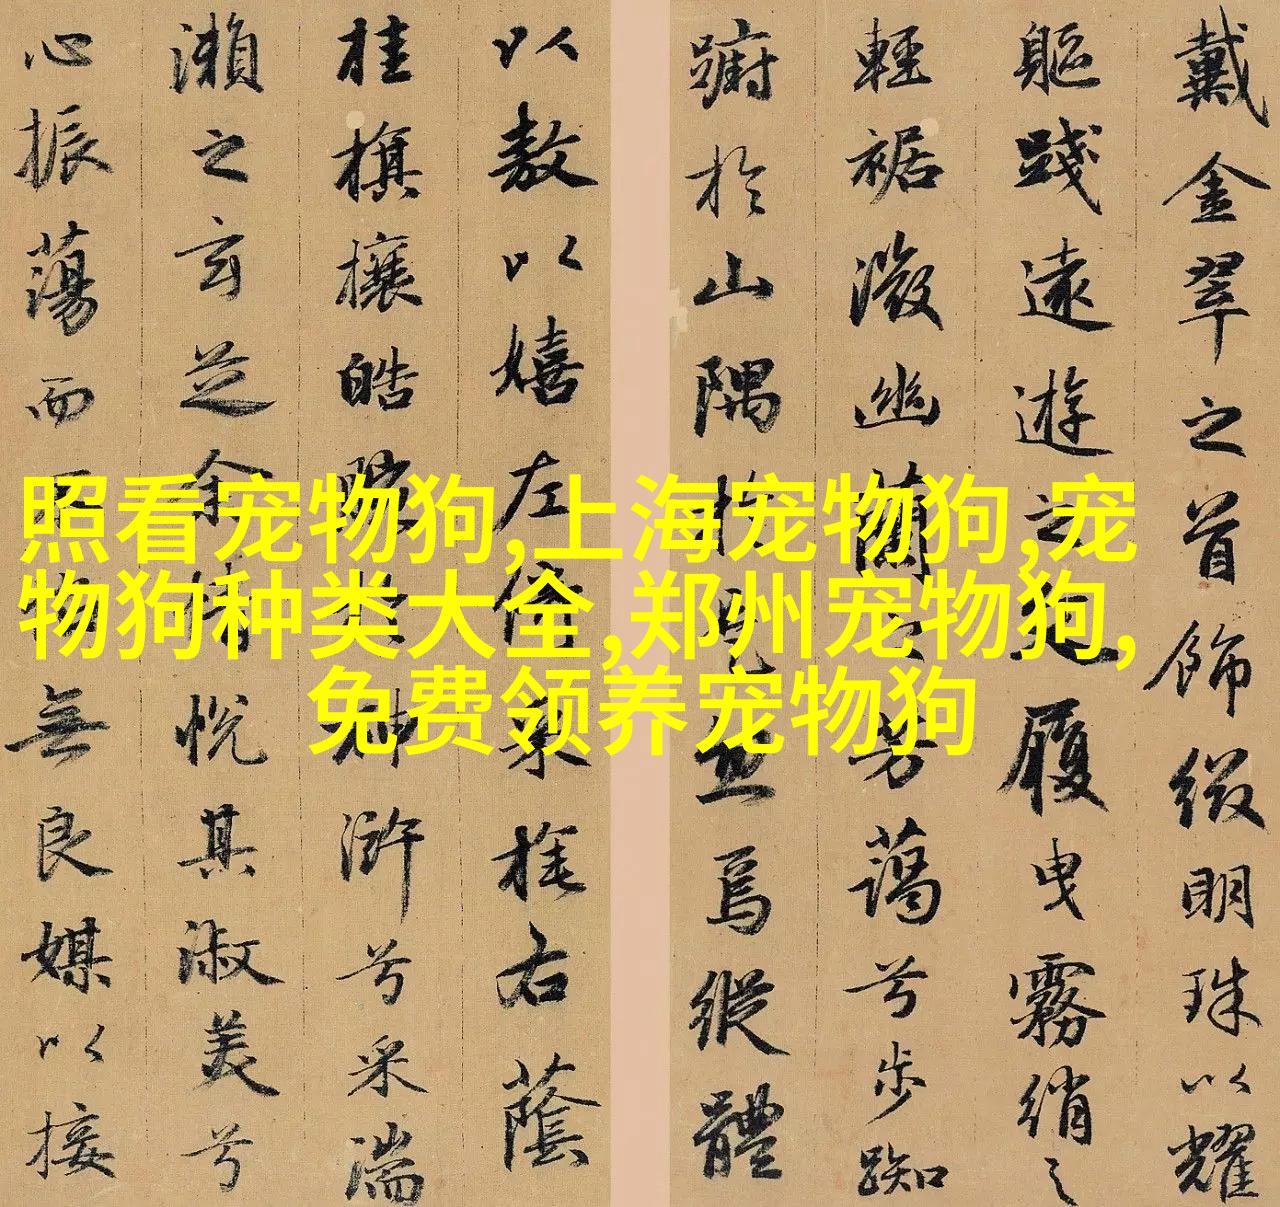 戴金翠之首飾綴明珠以耀
軀踐遠遊之文履曳霧綃之
輕裾微幽蘭之芳藹兮步踟
躕於山隅於是忽焉縱體
以敖以嬉左倚采旄右蔭
桂旗攘皓腕於神滸兮采湍
瀨之玄芝余情悅其淑美兮
心振蕩而不怡無良媒以接
照看宠物狗,上海宠物狗,宠
物狗种类大全,郑州宠物狗,
免费领养宠物狗